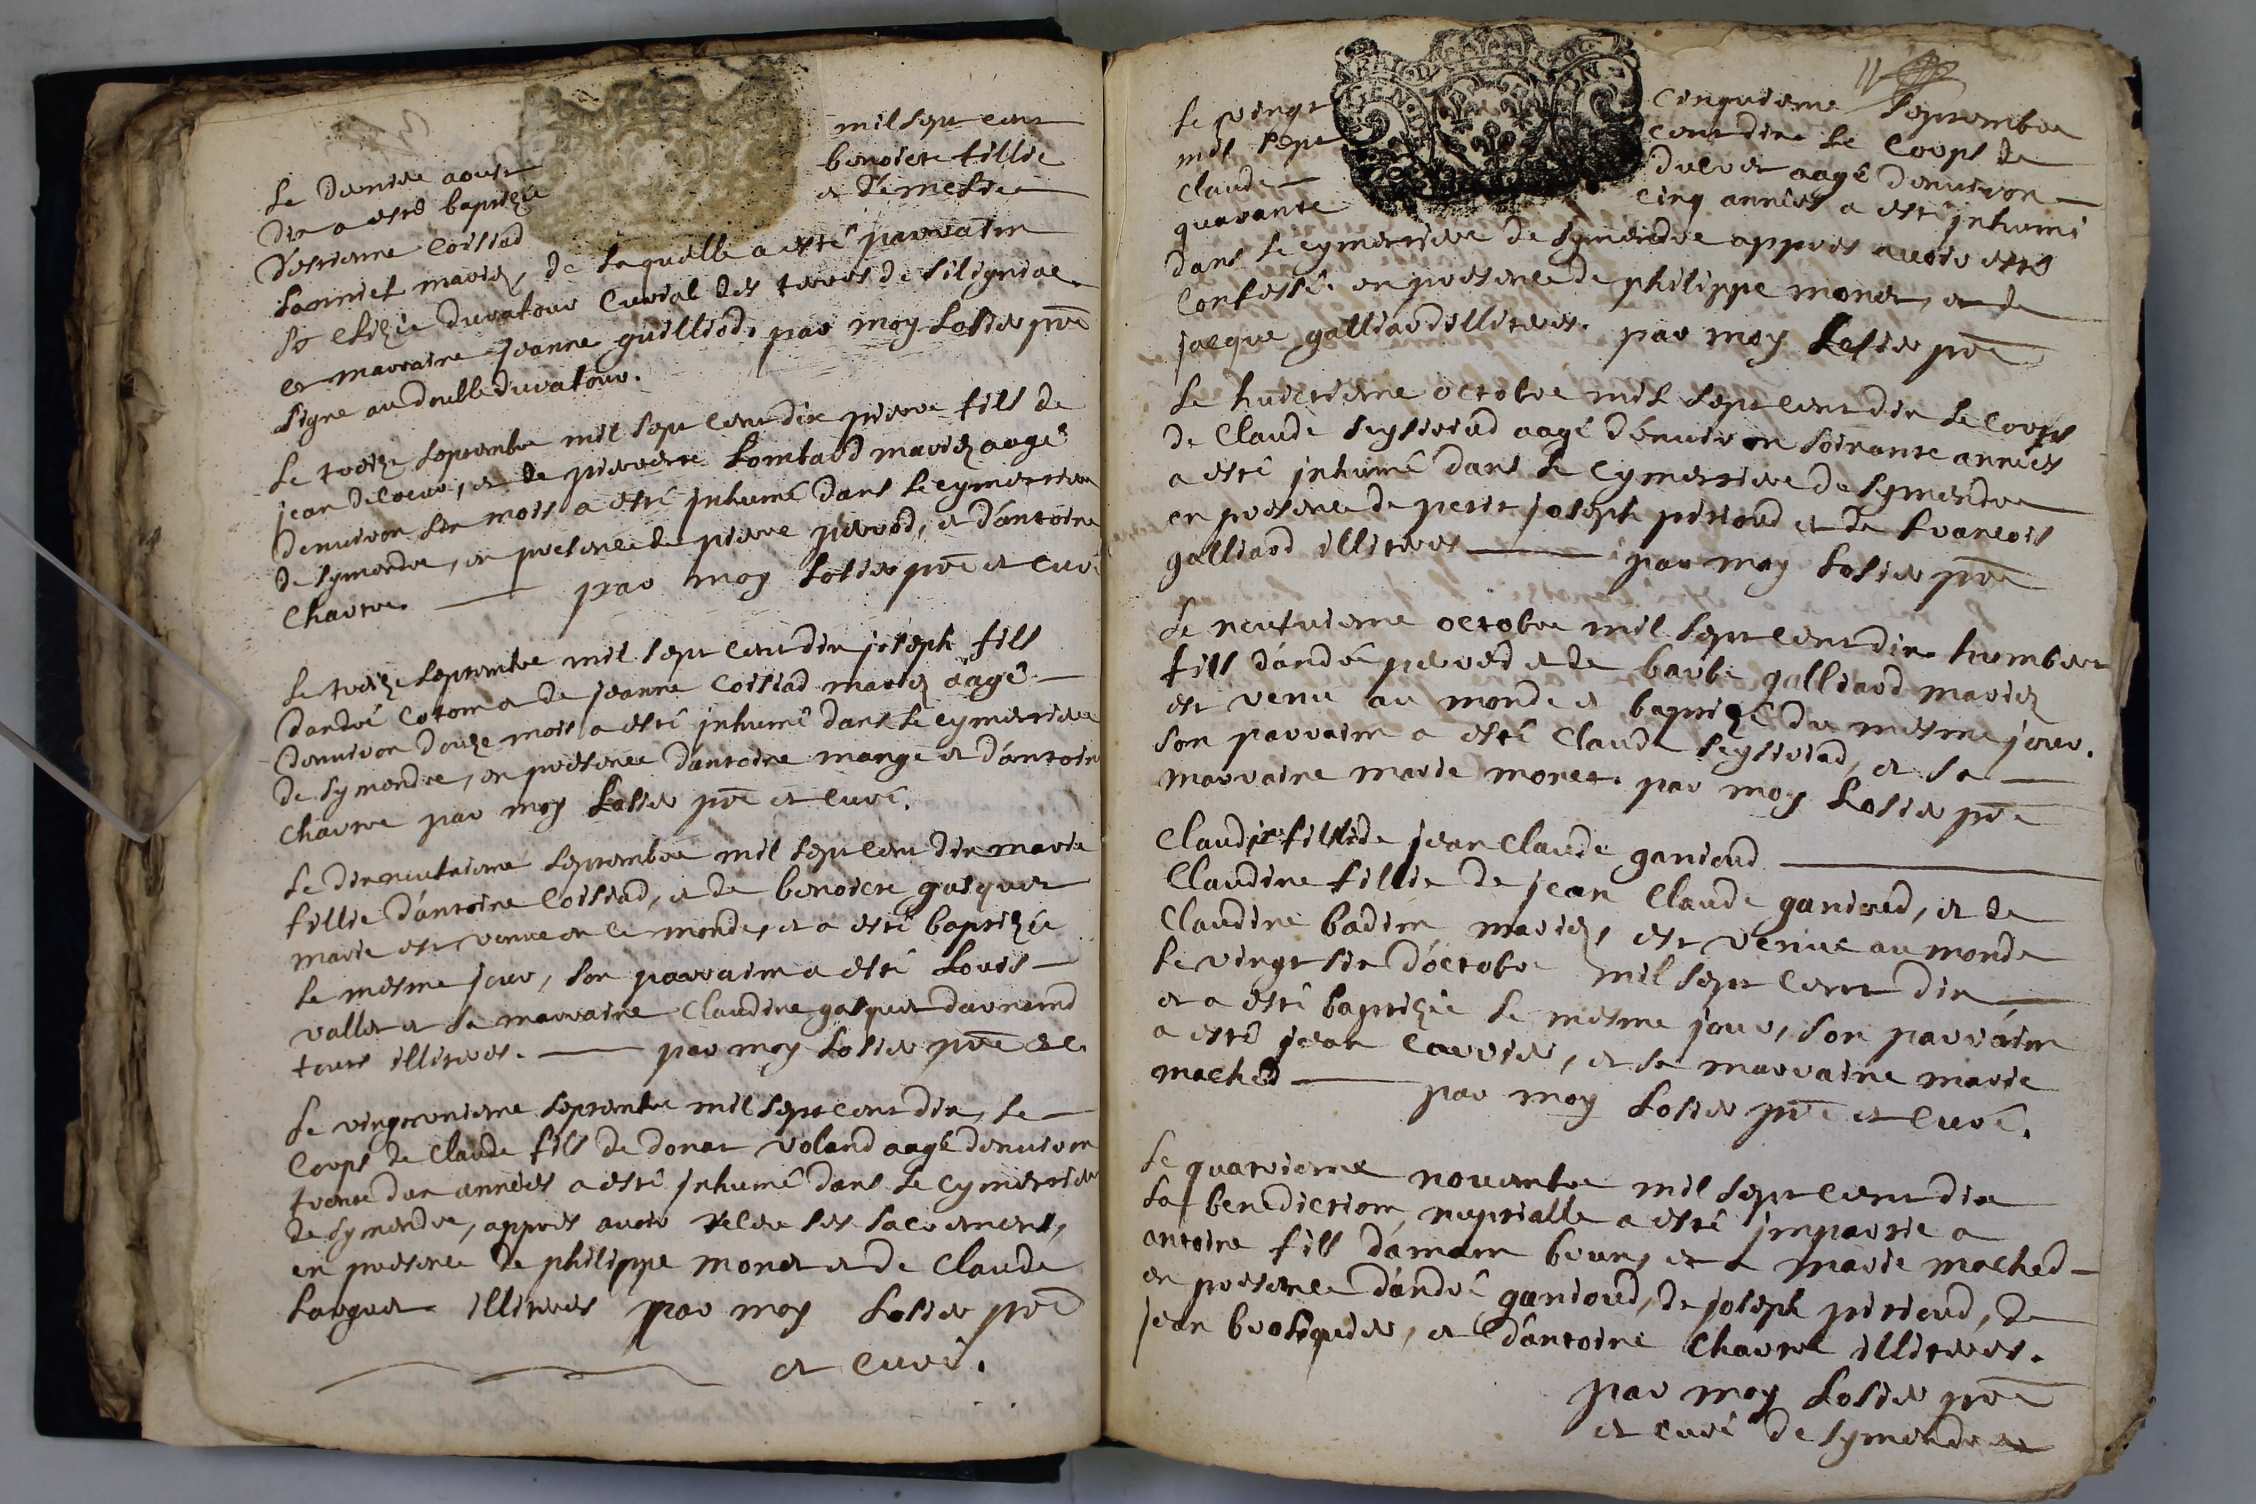 Le dernier aoust mil sept cent
dix a esté baptizée benoiete fillie
d'estienne Coissad et d'emestie
Sanniet mariez, de laquelle a esté parratin
Sr Elizée duratour Curial des terres de Siligniae
et marraine jeanne guilliod, par moy Lasier pre
signe au double duratour.
Le treize septembre mil sept cent dix pierre fils de
jean decoeur, et de pierrette Lombard mariez aagé
denviron six mois a esté jnhumé dans le cymettiere
de Symandre, en presence de pierre perrod, et d'antoine
Chartre. par moy Lasier pre et Curé
Le treize septembre mil sept cent dix joseph fils
dandré Coton et de jeanne Coissad mariez aagé
denviron douze mois a esté jnhumé dans le cymettiere
de Symandre, en presence d'antoine mange et d'antoine
Chartre par moy Lasier pre et Curé.
Le dixneufvieme septembre mil sept cent dix marie
fillie d'antoine Coissad, et de benoiete gasquet
marie est venue en ce monde, et a esté baptizée
le mesme jour, son parrain a esté Louis
vallet et sa marraine Claudine gasquet darnand
tous illiteres. par moy Lasier pre et C.
Le vingtunieme septembre mil sept cent dix, le
Corps de Claude fils de donat voland aagé denviron
trente deux années a esté jnhumé dans le Cymettiere
de Symandre, appres avoir receu ses sacrements,
en presence de philippe monet et de Claude
Larguet illiteres par moy Lasier pre
et Curé.
11
Le vingt Cinquieme septembre
mil sept cent dix le Corps de
Claude ducret aagé denviron
quarante Cinq années a esté jnhumé
dans le cymettiere de Symandre appres avoir esté
Confessé. en presence de philippe monet, et de
jacque galliard illiteres. par moy Lasier pre
Le huictieme octobre mil sept cent dix le Corps
de Claude seyssiriad aagé d'environ soixante années
a esté jnhumé dans le Cymettiere de Symandre
en presence de petit joseph pirioud et de francois
galliard illiteres par moy Lasier pre
Le neufvieme octobre mil sept cent dix humbert
fils d'andré perrod et de barbe galliard mariez
est venu au monde et baptizé du mesme jour.
son parrain a esté Claude seyssiriad, et sa
marraine marie monet. par moy Lasier pre
Claudine fillie de jean Claude ganioud
Claudine fillie de jean Claude ganioud, et de
Claudine badin mariez, est venue au monde
le vingt six d'octobre mil sept cent dix
et a esté baptizée le mesme jour, son parrain
a esté jean Carrier, et sa marraine marie
mached par moy Lasier pre et Curé.
Le quatrieme novembre mil sept cent dix
la benediction nuptialle a esté jmpartie a
antoine fils d'amam brun, et a marie mached
en presence d'andré ganioud, de joseph pirioud, de
jean brossequier, et d'antoine Chartre illiteres.
par moy Lasier pre
et Curé de Symandre